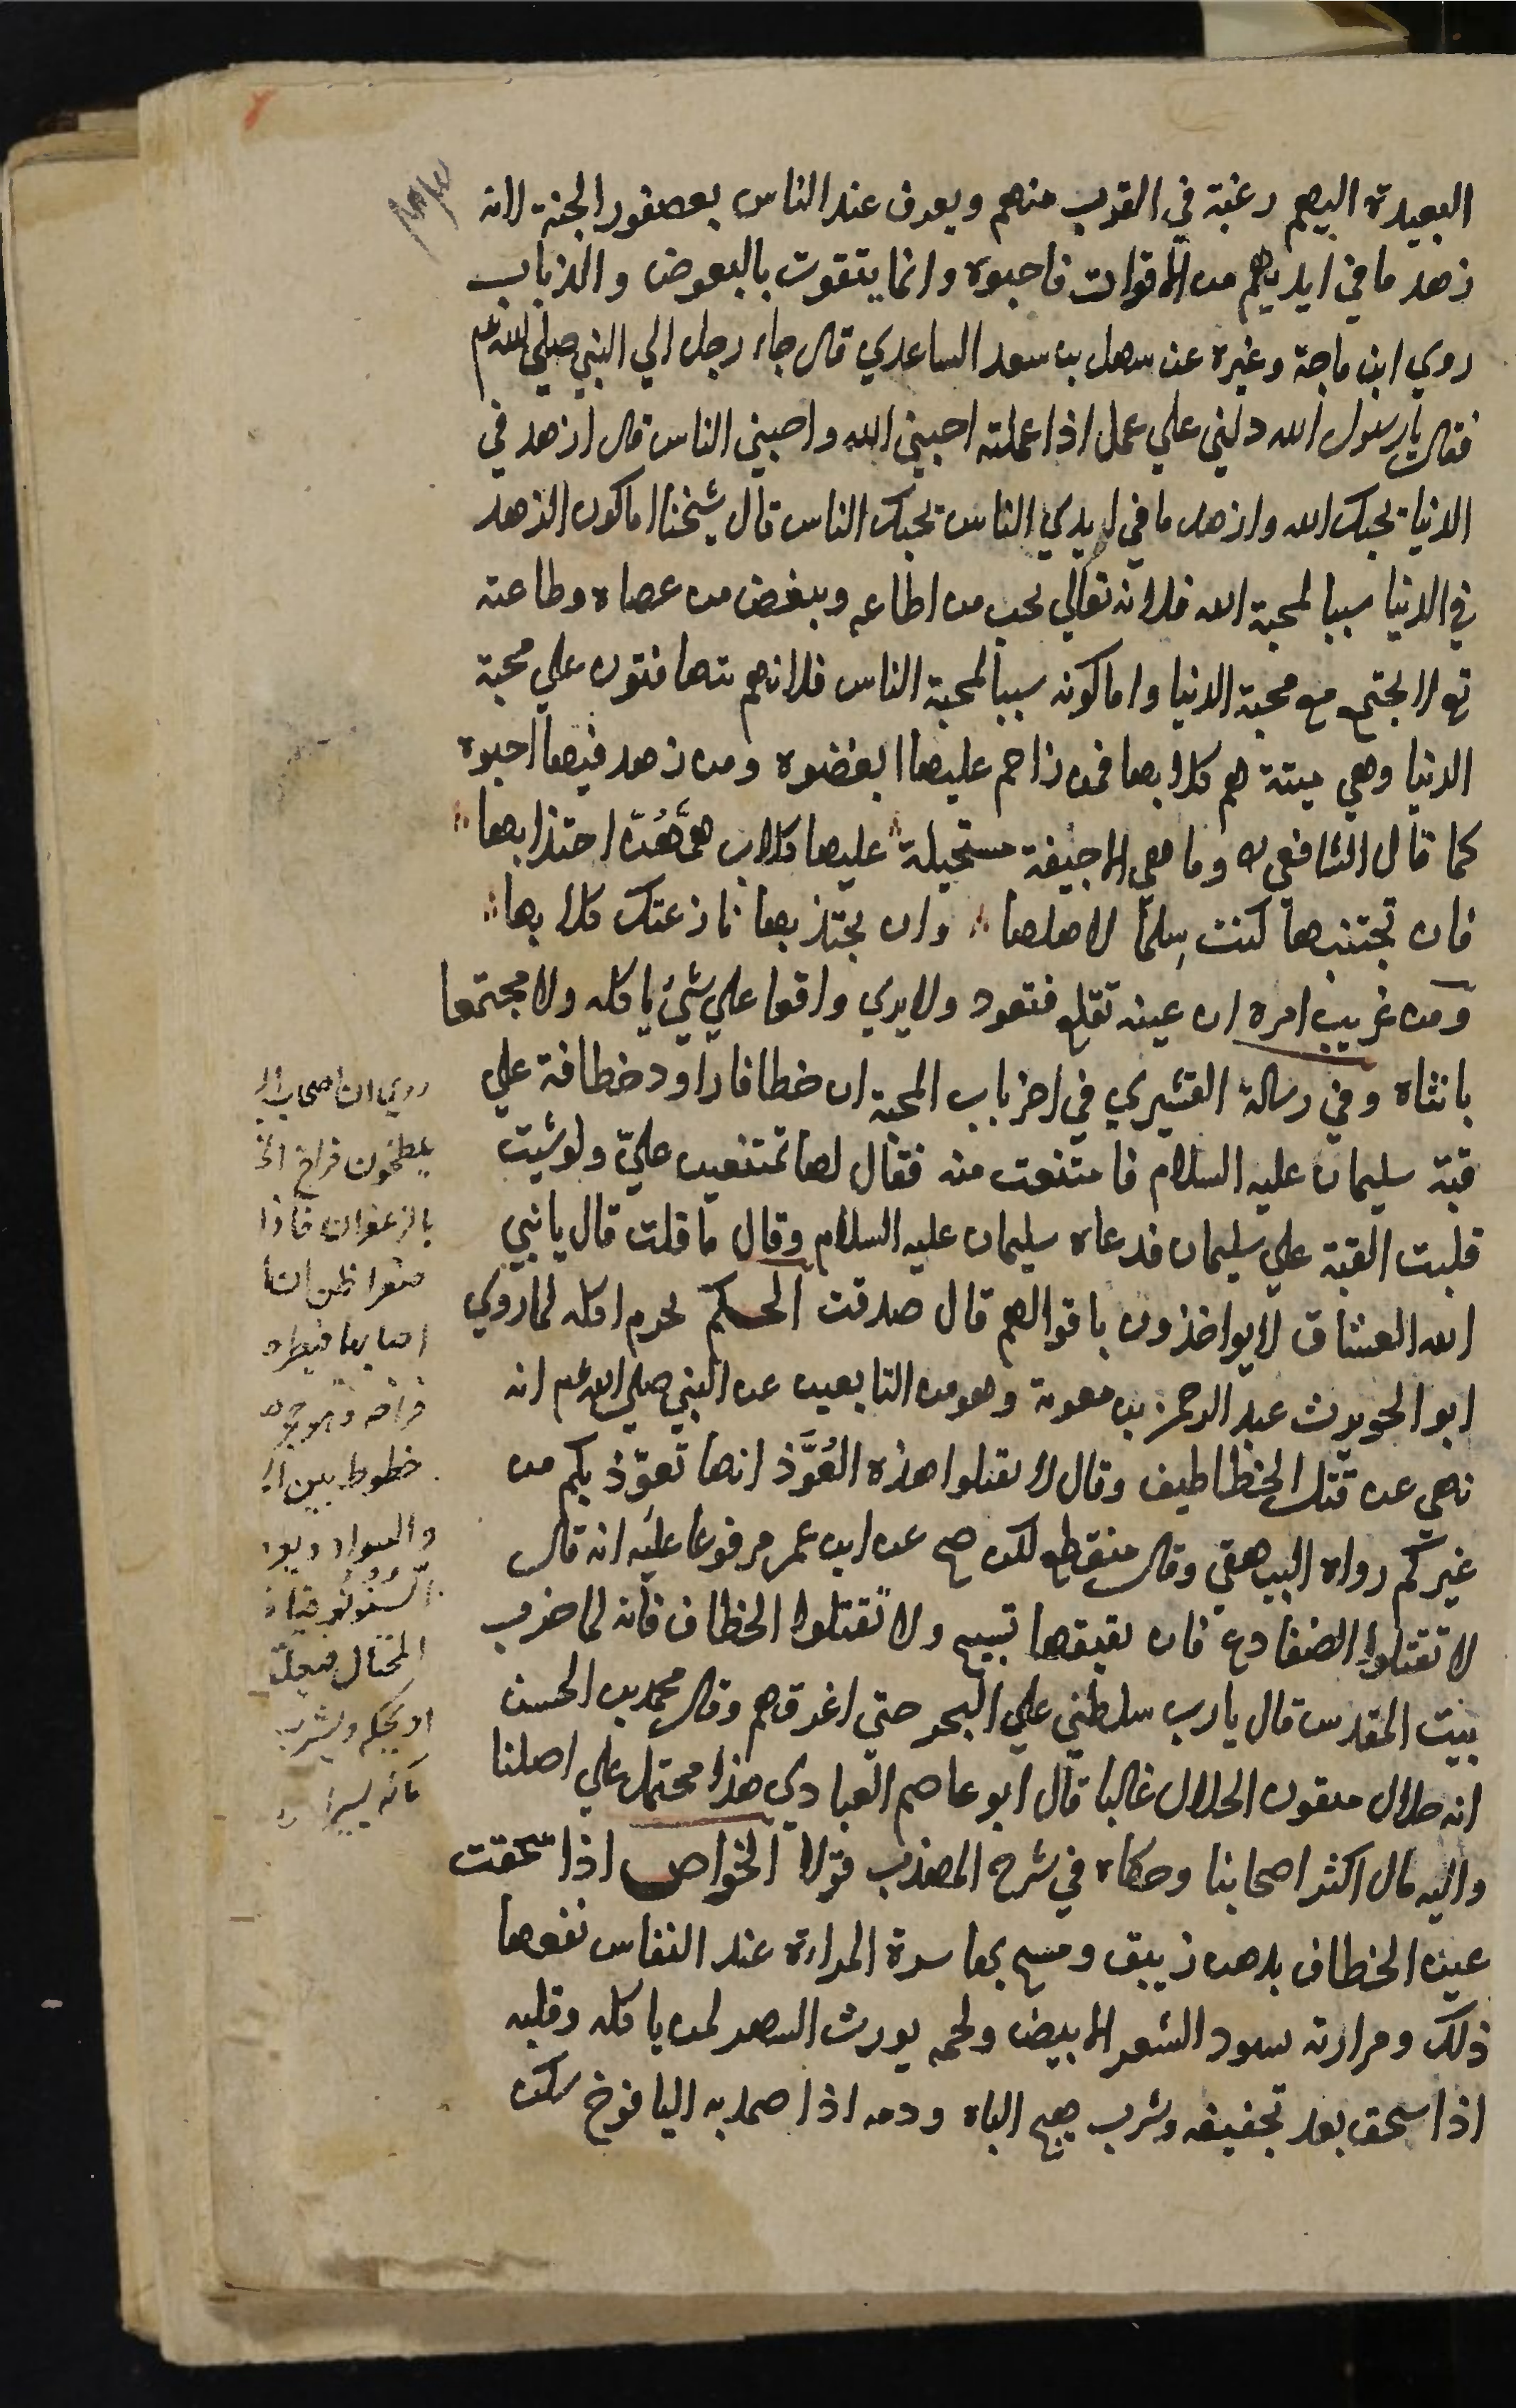 البعيدة اليهم رغبة في القرب منهم ويعرف عند الناس بعصفور الجنة لانه
زهد ما في ايديهم من الاقوات فاحبوه وانما يتقوت بالبعوض والذباب
روي ابن ماجة وغيره عن سهل بن سعد الساعدي قال جاء رجل الي النبي صلي الله عم
فقال يا رسول الله دلني علي عمل اذا عملته احبني الله واحبني الناس قال ازهد في
الدنيا يحبك الله وازهد ما في ايدي الناس يحبك الناس قال شيخنا اما كون الزهد
في الدنيا سببا لمحبة الله فلانه تعالي يحب من اطاعه ويبغض من عصاه وطاعته
تع لا تجتمع مع محبة الدنيا واما كونه سببا لمحبة الناس فلانهم يتهافتون علي محبة
الدنيا وهي ميتة هم كلابها فمن زاحم عليها ابغضوه ومن زهد فيها احبوه
كما قال الشافعي ره وما هي الا جيفة مستحيلة عليها كلاب همهن اجتذابها
فان تجتنبها كنت سلما لاهلها وان تجتذبها نازعتك كلابها
ومن غريب امره ان عينه تقلع فتعود ولا يري واقعا علي شئ ياكله ولا مجتمعا
بانثاه وفي رسالة القشيري في اخر باب المحبة ان خطافا راود خطافة علي
قبة سليمان عليه السلام فامتنعت منه فقال لها تمتنعين علي ولو شيت
قلبت القبة علي سليمان فدعاه سليمان عليه السلام وقال ما قلت قال يا نبي
الله العشاق لا يواخذون باقوالهم قال صدقت الحكم يحرم اكله لما روي
ابو الحويرث عبد الرحمن بن معوية وهو من التابعين عن النبي صلي الله عم انه
نهي عن قتل الخطاطيف وقال لا تقتلوا هذه العُوَّذ انها تعوّذ بكم من
غيركم رواه البيهقي وقال منقطع لكن صح عن ابن عمر مرفوعا عليه انه قال
لا تقتلوا الضفادع فان نقيقها تسبيح ولا تقتلوا الخطاف فانه لما خرب
بيت المقدس قال يا رب سلطني علي البحر حتي اغرقهم وقال محمد بن الحسن
انه حلال يتقوت الحلال غالبا قال ابو عاصم العبادي هذا محتمل علي اصلنا
واليه مال اكثر اصحابنا وحكاه في شرح المهذب قولا الخواص اذا سحقت
عين الخطاف بدهن زيبق ومسح بها سرة المراءة عند النفاس نفعها
ذلك ومرارته تسود الشعر الابيض ولحمه يورث السهر لمن ياكله وقلبه
اذا سحق بعد تجفيفه وشرب هيج الباه ودمه اذا ضمد به اليافوخ سكن
روي ان اصحاب
يلطخون فراخ
بالزعفران فاذا
صفرا ظن ان
اصابها فيطرد
خطوط بين
والسواد
السنونو